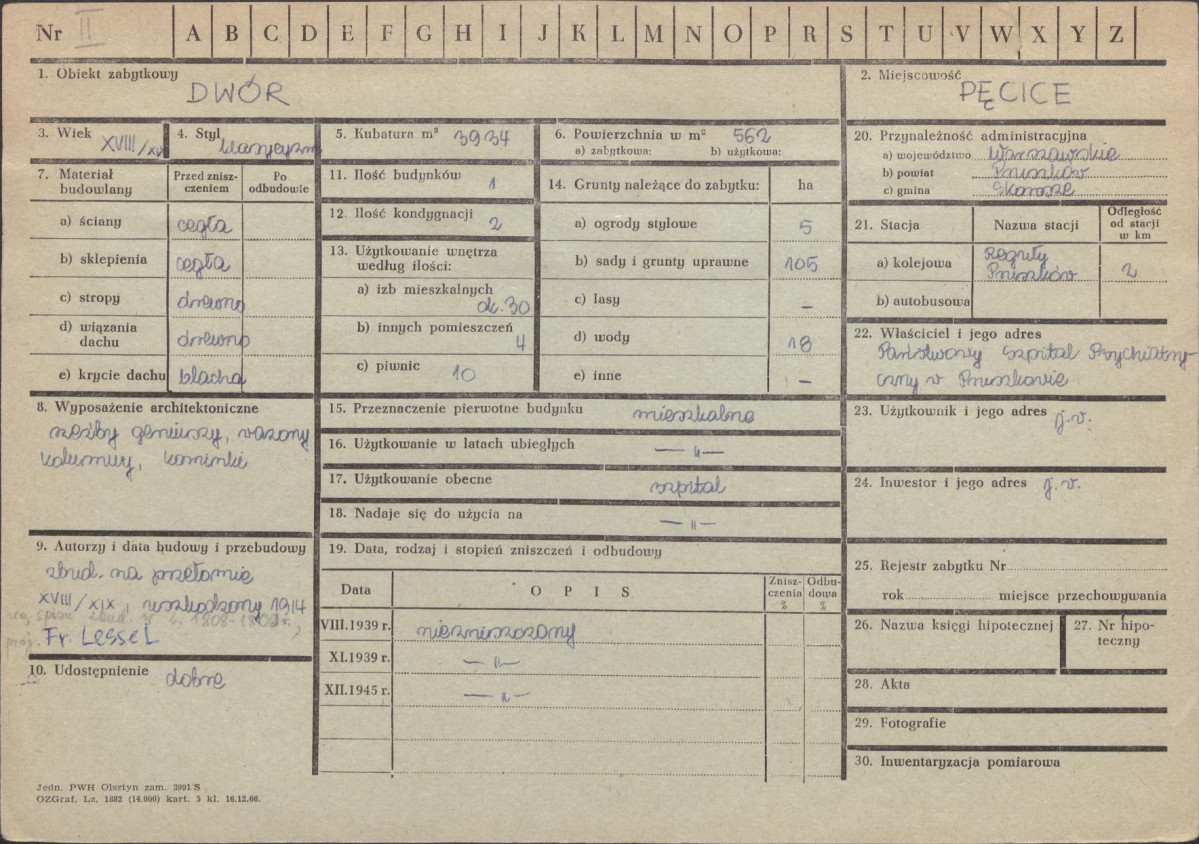 Nr II A B C D E F G H I J K L M N O P R S T U V W X Y Z
1. Obiekt zabytkowy
DWÓR
2. Miejscowość
PĘCICE
3. Wiek
XVIII/XIX
4. Styl
klasycyzm
5. Kubatura m³ 3934
6. Powierzchnia w m² 562
a) zabytkowa: b) użytkowa:
7. Materiał budowlany
Przed zniszczeniem
Po odbudowie
a) ściany cegła
b) sklepienia cegła
c) stropy drewno
d) wiązania dachu drewno
e) krycie dachu blacha
8. Wyposażenie architektoniczne
rzeźby geniuszy, wazony
kolumny, kominki
9. Autorzy i data budowy i przebudowy
zbud. na przełomie
XVIII/XIX, uszkodzony 1914
wg spisu zbud. w l. 1808-1809r.,
proj. Fr. LesseL
10. Udostępnienie dobre
11. Ilość budynków 1
12. Ilość kondygnacji 2
13. Użytkowanie wnętrza
według ilości:
a) izb mieszkalnych
ok. 30
b) innych pomieszczeń
4
c) piwnic 10
14. Grunty należące do zabytku: ha
a) ogrody stylowe 5
b) sady i grunty uprawne 105
c) lasy –
d) wody 18
e) inne –
15. Przeznaczenie pierwotne budynku mieszkalne
16. Użytkowanie w latach ubiegłych — „ —
17. Użytkowanie obecne szpital
18. Nadaje się do użycia na — „ —
19. Data, rodzaj i stopień zniszczeń i odbudowy
Data OPIS Zniszczenia % Odbudowa %
VIII.1939 r. niezniszczony
XI.1939 r. — „ —
XII.1945 r. — „ —
20. Przynależność administracyjna
a) województwo Warszawskie
b) powiat Pruszków
c) gmina Skorosze
21. Stacja Nazwa stacji Odległość od stacji w km
a) kolejowa Reguły
Pruszków 2
b) autobusowa
22. Właściciel i jego adres
Państwowy Szpital Psychiatry-
czny w Pruszkowie
23. Użytkownik i jego adres j.w.
24. Inwestor i jego adres j.w.
25. Rejestr zabytku Nr
rok miejsce przechowywania
26. Nazwa księgi hipotecznej
27. Nr hipoteczny
28. Akta
29. Fotografie
30. Inwentaryzacja pomiarowa
Jedn. PWH Olsztyn zam. 3991 S
OZGraf. Lz. 1882 (14.000) kart. 5 kl. 16.12.66.